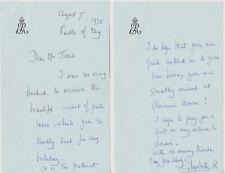 August 5th 1970
Castle of Mey
Dear Mr Jones
I was so very
touched to receive this
beautiful basket of pink
roses, which you so
kindly sent for my
birthday.
It is the
I do hope that you are
settled in to your
new home, you are
greatly missed at
Clarence House!
I hope to pay you a
visit on my return to
London.
With so many thanks,
I am, yours
Elizabeth R